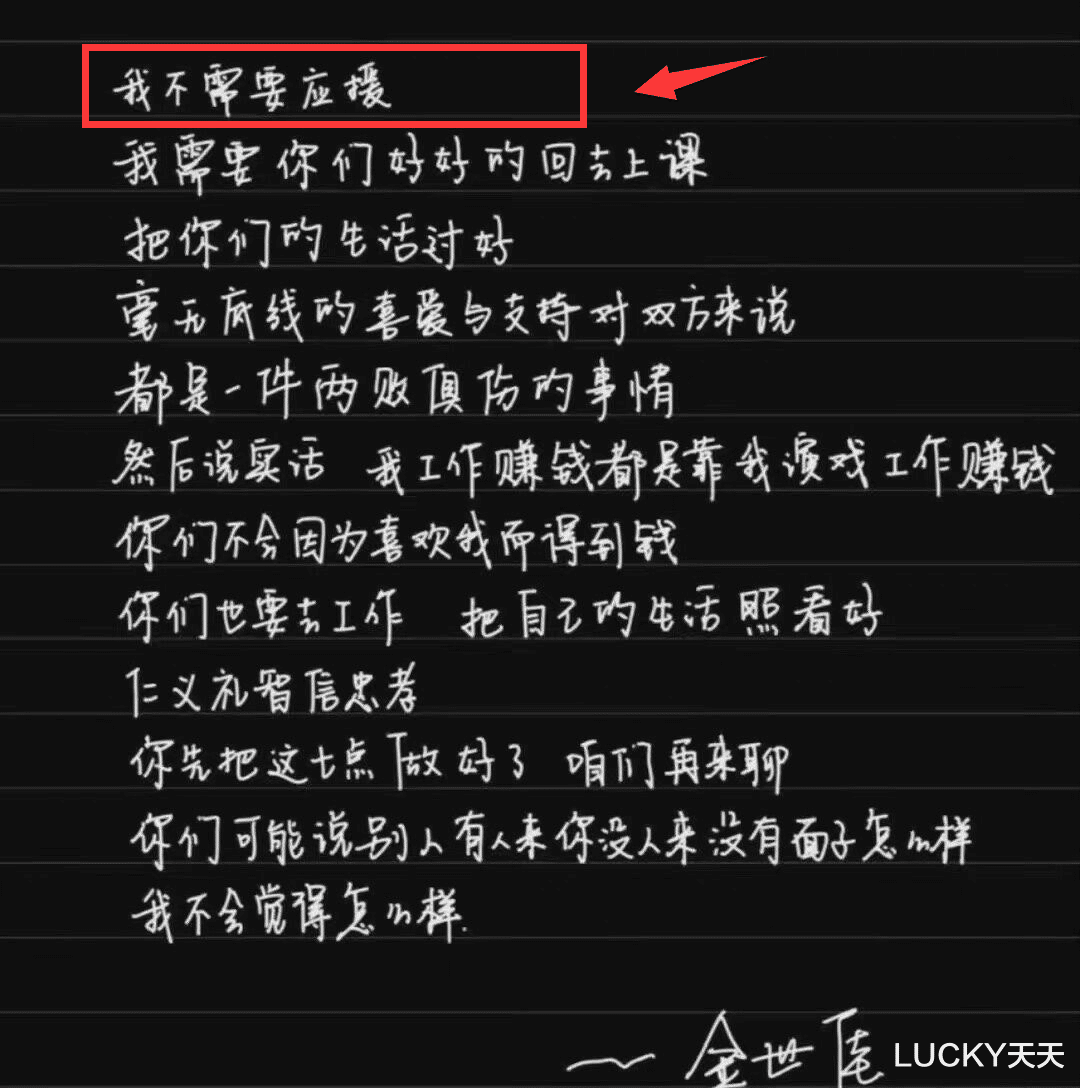 我不需要应援
我需要你们好好的回去上课
把你们的生活过好
毫无底线的喜爱与支持对双方来说
都是一件两败俱伤的事情
然后说实话 我工作赚钱都是靠我演戏工作赚钱
你们不会因为喜欢我而得到钱
你们也要去工作 把自己的生活照看好
仁义礼智信忠孝
你先把这七点做好了 咱们再来聊
你们可能说别人有人来你没人来没有面子怎么样
我不会觉得怎么样.
~ 金世佳
LUCKY天天